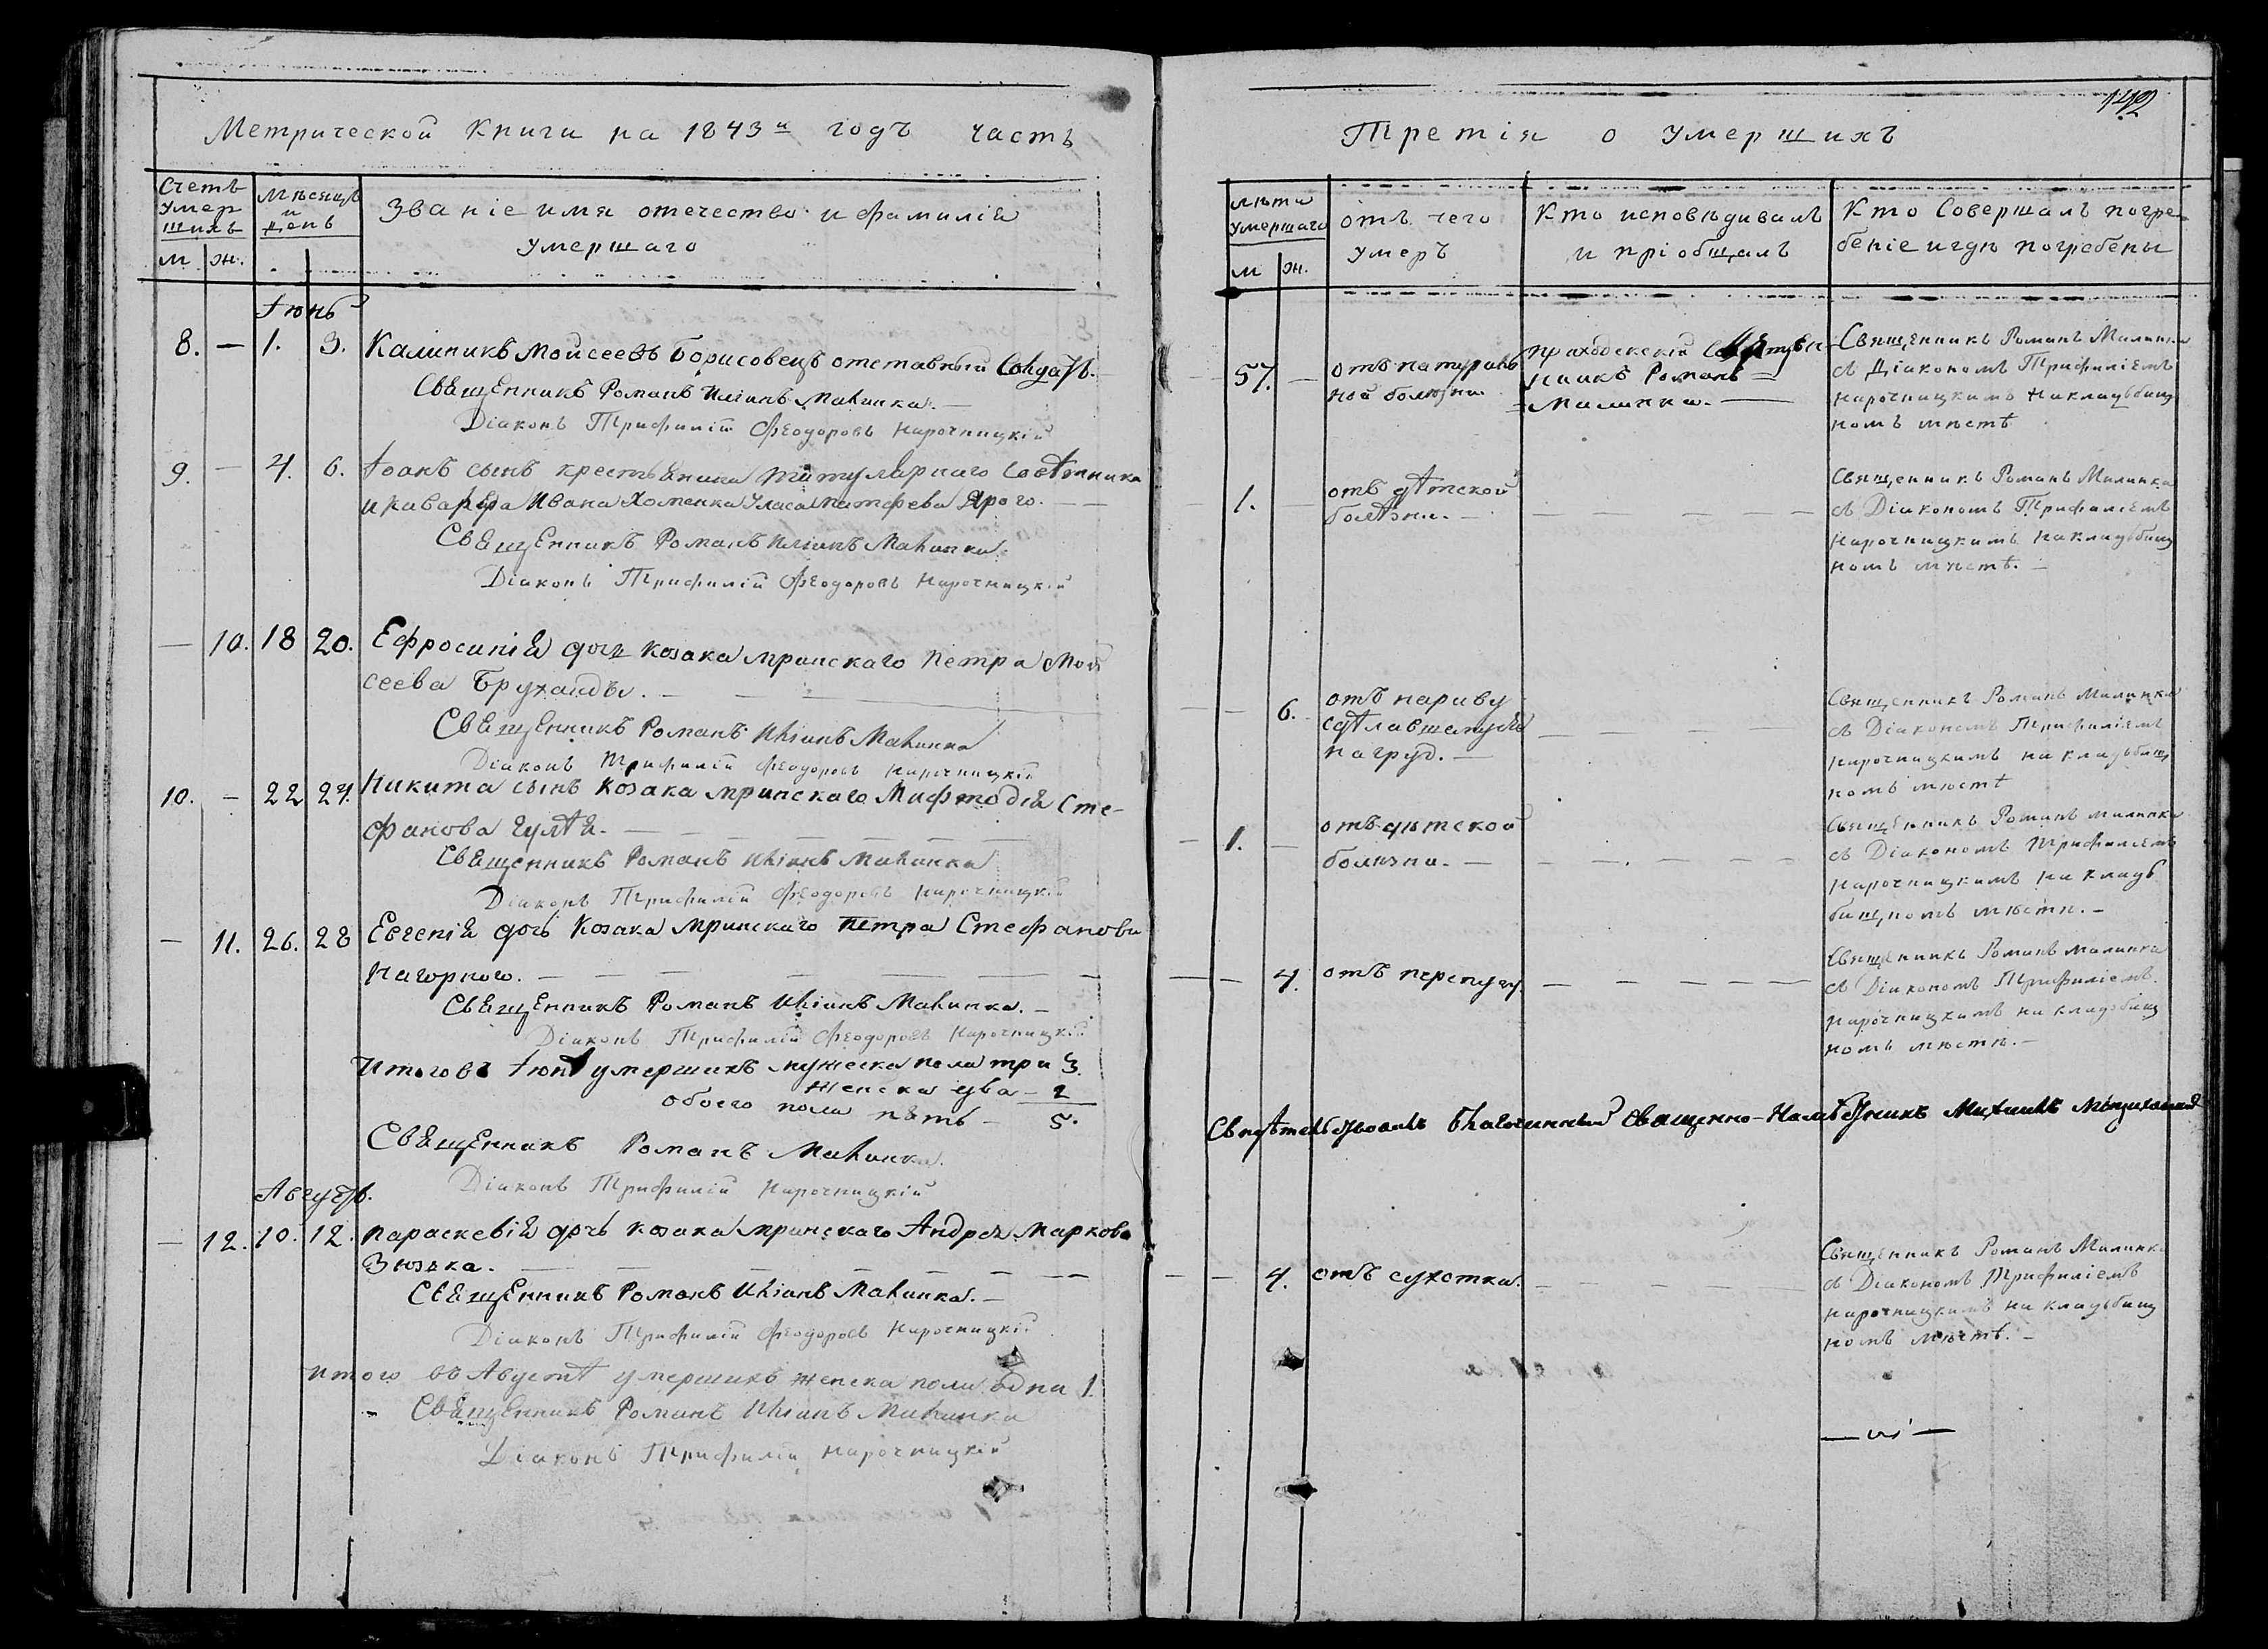 Метрической Книги на 1843й годъ часть
Счетъ умер шихъ
м ж.
Мѣсяцъ и день
Званіе имя отечество и фамилія
умершаго
Іюнь
8. — 1. 3. Калиникъ Моисеевъ Борисовецъ отставный Солдатъ.
Священникъ Романъ Иліинъ Малинка.
Діаконъ Трифилій Феодоровъ Нарочницкій
9. — 4. 6. Іоанъ сынъ крестьянина титулярнаго Совѣтника
и кавалера Ивана Хоменка Уласа Матфеева Ярого.
Священникъ Романъ Иліинъ Малинка.
Діаконъ Трифилій Феодоровъ Нарочницкій
— 10. 18 20. Ефросинія дочь козака мринскаго Петра Мой
сеева Бруханды.
Священникъ Романъ Иліинъ Малинка
Діаконъ Трифилій Феодоровъ Нарочницкій
10. — 22 24. Никита сынъ Козака мринскаго Мифтодія Сте-
фанова
Священникъ Романъ Иліинъ Малинка
Діаконъ Трифилій Феодоровъ Нарочницкій
— 11. 26. 28 Евгенія дочь Козака мринскаго Петра Стефанова
Нагорного.
Священникъ Романъ Иліинъ Малинка.
Діаконъ Трифилій Феодоровъ Нарочницкій
Итого въ Іюнѣ умершихъ мужеска пола три 3.
женска два — 2
обоего пола пять — 5.
Священникъ Романъ Малинка.
Діаконъ Трифилій Нарочницкій
Августъ.
— 12. 10. 12. Параскевія дочь козака мринскаго Андрея Маркова
Зюзька.
Священникъ Романъ Иліинъ Малинка.
Діаконъ Трифилій Феодоровъ Нарочницкій
Итого въ Августѣ умершихъ женска пола одна 1.
Священникъ Романъ Иліинъ Малинка
Діаконъ Трифилій Нарочницкій
Третія о умершихъ
лѣта умершаго
м ж.
отъ чего
умеръ
Кто исповѣдивалъ
и пріобщалъ
Кто Совершалъ погре-
беніе и гдѣ погребены
57. — отъ натураль
ной болѣзни
приходскій
нникъ Романъ
Малинка.
Священникъ Романъ Малинка
съ Діакономъ Трифиліемъ
Нарочницкимъ на кладьбищ
номъ мѣстѣ
1. — отъ дѣтской
болѣзни.
Священникъ Романъ Малинка
съ Діакономъ Трифиліемъ
Нарочницкимъ на кладьбищ
номъ мѣстѣ.
— 6. отъ нариву
сдѣлавшагуся
на груд.
Священникъ Романъ Малинка
съ Діакономъ Трифиліемъ
Нарочницкимъ на кладьбищ
номъ мѣстѣ
1. — отъ дѣтской
болѣзни.
Священникъ Романъ Малинка
съ Діакономъ Трифиліемъ
Нарочницкимъ на кладь
бищномъ мѣстѣ.
— 4. отъ перепугу.
Священникъ Романъ Малинка
съ Діакономъ Трифиліемъ
Нарочницкимъ на кладьбищ
номъ мѣстѣ.
Свидѣтельствовалъ Благочинный Священно-Намѣстникъ Михаилъ
— 4. отъ сухотки.
Священникъ Романъ Малинка
съ Діакономъ Трифиліемъ
Нарочницкимъ на кладьбищ
номъ мѣстѣ.